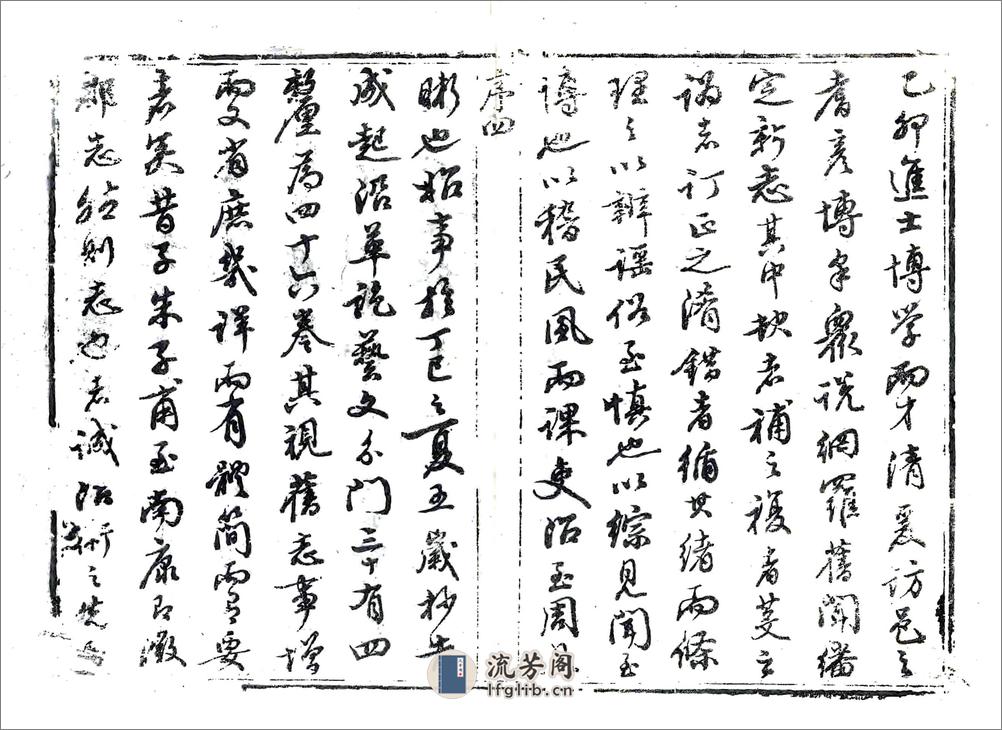 己卯進士博學而才清裏訪邑之
耆彥博采羣說網羅舊聞纘
定新志其中缺者補之複者芟之
譌者訂正之淆錯者循其緒而條
理之以辯謡俗至慎也以綜見聞至
溥也以稽民風而課吏治至周
序四
晰也始事於丁巳之夏五歲杪告
成起沿革訖藝文分門三十有四
釐為四十六卷其視舊志事增
而文省庶幾詳而有體簡而有要
者矣昔子朱子甫至南康即徵
郡志然則志也者誠治術之先
流芳阁
lfglib.cn